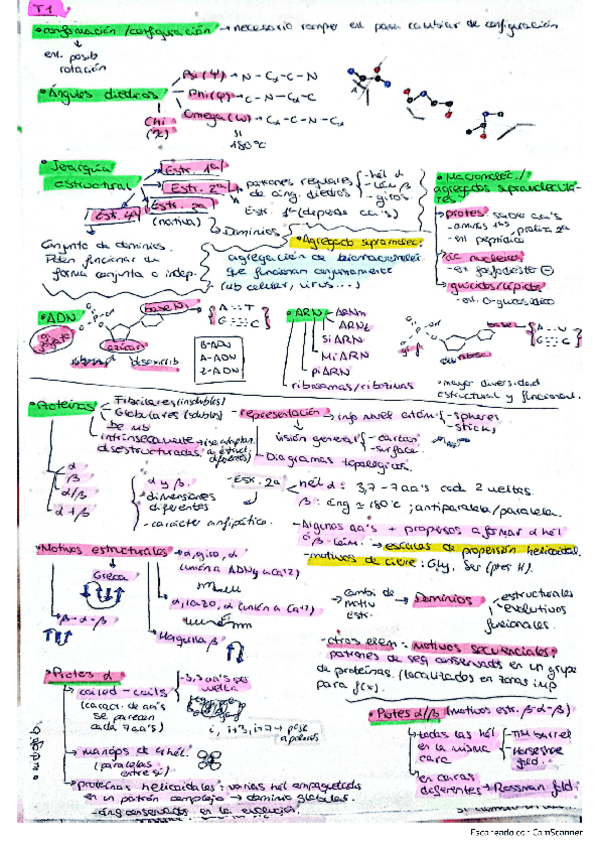 T1
• conformación/configuración → necesario romper enl para cambiar de configuración
enl. posib
rotación
• Ángulos diedricos
Psi (ψ) → N - Cα - C - N
Phi (φ) → C - N - Cα - C
Omega (ω) → Cα - C - N - Cα
180ºC
Chi
(χ)
• Jerarquía
estructural
Estr. 1ª
Estr. 2ª → patrones regulares
de áng. diedros
- hél α
- lám β
- giros.
Estr. 3ª
(nativa)
Estr. 1ª (depende aa's)
Dominios
Estr. 4ª
Conjunto de dominios.
Pueden funcionar de
forma conjunta o indep.
• Agregado supramolec.
agregación de biomacromolec.
que funcionan conjuntamente
(ub celular, virus...)
• Macromolec./
agregados supramolecula-
res.
protes
- enl peptídico
ác nucleicos
- enl fosfodiester ⊖
glúcidos/lípidos
- enl O-glucosídico
• ADN
base N.
A = T
G ≡ C
azúcar
B-ADN
A-ADN
Z-ADN
• ARN
ARNm
ARNt
siARN
MiARN
piARN
ribosomas/ribozimas
base
A = U
G ≡ C
ribosa
• mayor diversidad
estructural y funcional.
• Proteínas
Fibrilares (insolubles)
Globulares (soluble)
intrínsecamente
desestructuradas
α
β
α/β
α+β
- representación → info nivel atóm
- spheres
- sticks
visión general
- cartoon
- surface
Diagramas topologicos.
α y β.
• dimensiones
diferentes
- carácter anfipático.
- estr. 2ª
hél α: 3,7 - 7 aa's cada 2 vueltas.
β: áng ≈ 180ºC; antiparalela/paralela.
- Algunos aa's + propensos a formar α hél
ó β-lám. → escalas de propensión helicoidal.
- motivos de cierre: Gly, Ser (ptes H).
• Motivos estructurales
α, giro, α
(unión a ADN y a Ca+2)
Greca
α, lazo, α (unión a Ca+2)
β-α-β
Horquilla β
→ combi de
motivo
estr.
→ Dominios
estructurales
evolutivos
funcionales.
- otros ejem: motivos secuenciales:
patrones de seq conservados en un grupo
de proteínas. (localizados en zonas imp
para f(x).
• Protes α
coiled-coils
(caract. de aa's
se parecen
cada 7aa's)
- 3,5 aa's por
vuelta
i, i+3, i+7 → pos
apolares
manojos de 4 hél.
(paralelas
entre sí)
proteínas helicoidales: varias hél empaquetadas
en un patrón complejo → dominio globular.
- áng conservados en la evolución.
• Protes α/β (motivos estr. β-α-β)
todas las hél
en la misma
cara
- TIM barrel
- Horseshoe
fold.
en caras
diferentes → Rossman fold.
Escaneado con CamScanner